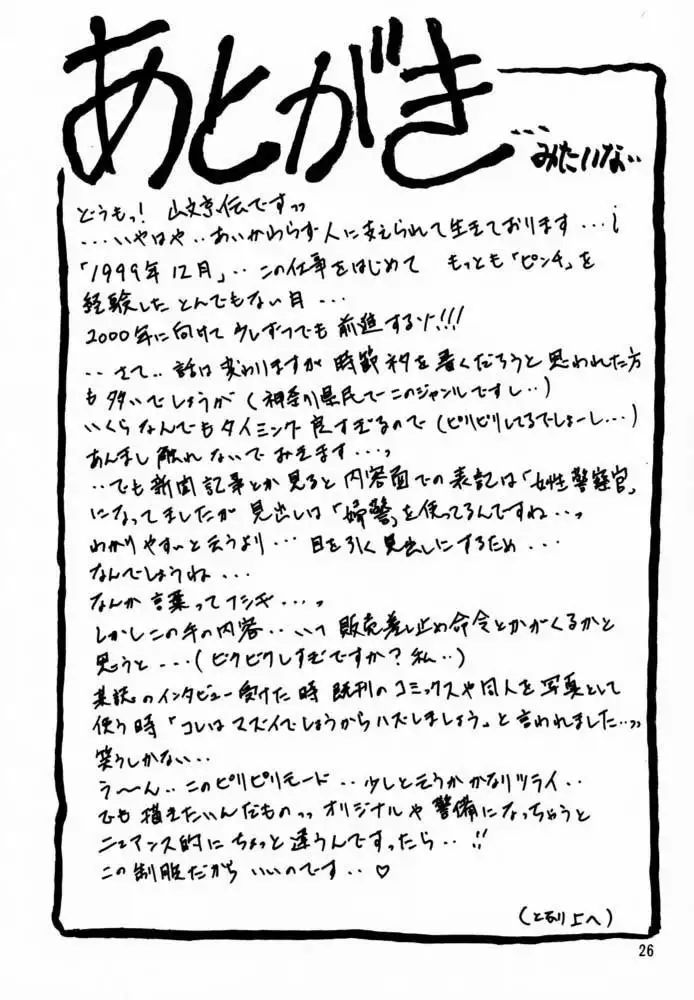 あとがき
...みたいな..
どうもっ! 山文京伝ですッ
...いやはや..あいかわらず人に支えられて生きております...
「1999年12月」..この仕事をはじめて もっとも「ピンチ」を
経験したとんでもない月...
2000年に向けて少しずつでも前進するゾ!!!
..さて..話は変わりますが時節ネタを書くだろうと思われた方
も多いでしょうが(神奈川県民でーこのジャンルですし..)
いくらなんでもタイミング良すぎるので(ピリピリしてるでしょーし...)
あんまし触れないでおきます...っ
..でも新聞記事とか見ると内容面での表記は「女性警察官」
になってましたが見出しは「婦警」を使ってるんですね..っ
わかりやすいと云うより...目を引く見出しにするため...
なんでしょうね...
なんか言葉ってフシギ...っ
しかしこの手の内容..いつ販売差し止め命令とかがくるかと
思うと...(ビクビクしすぎですか?私..)
某誌のインタビュー受けた時既刊のコミックスや同人を写真として
使う時「コレはマズイでしょうからハズしましょう」と言われました..ッ
笑うしかない..
う〜ん..このピリピリモード..少しと云うかかなりツライ..
でも描きたいんだものッオリジナルや警備になっちゃうと
ニュアンス的にちょっと違うんですったら..!!
この制服だから いいのです..♡
(となり上へ)
26